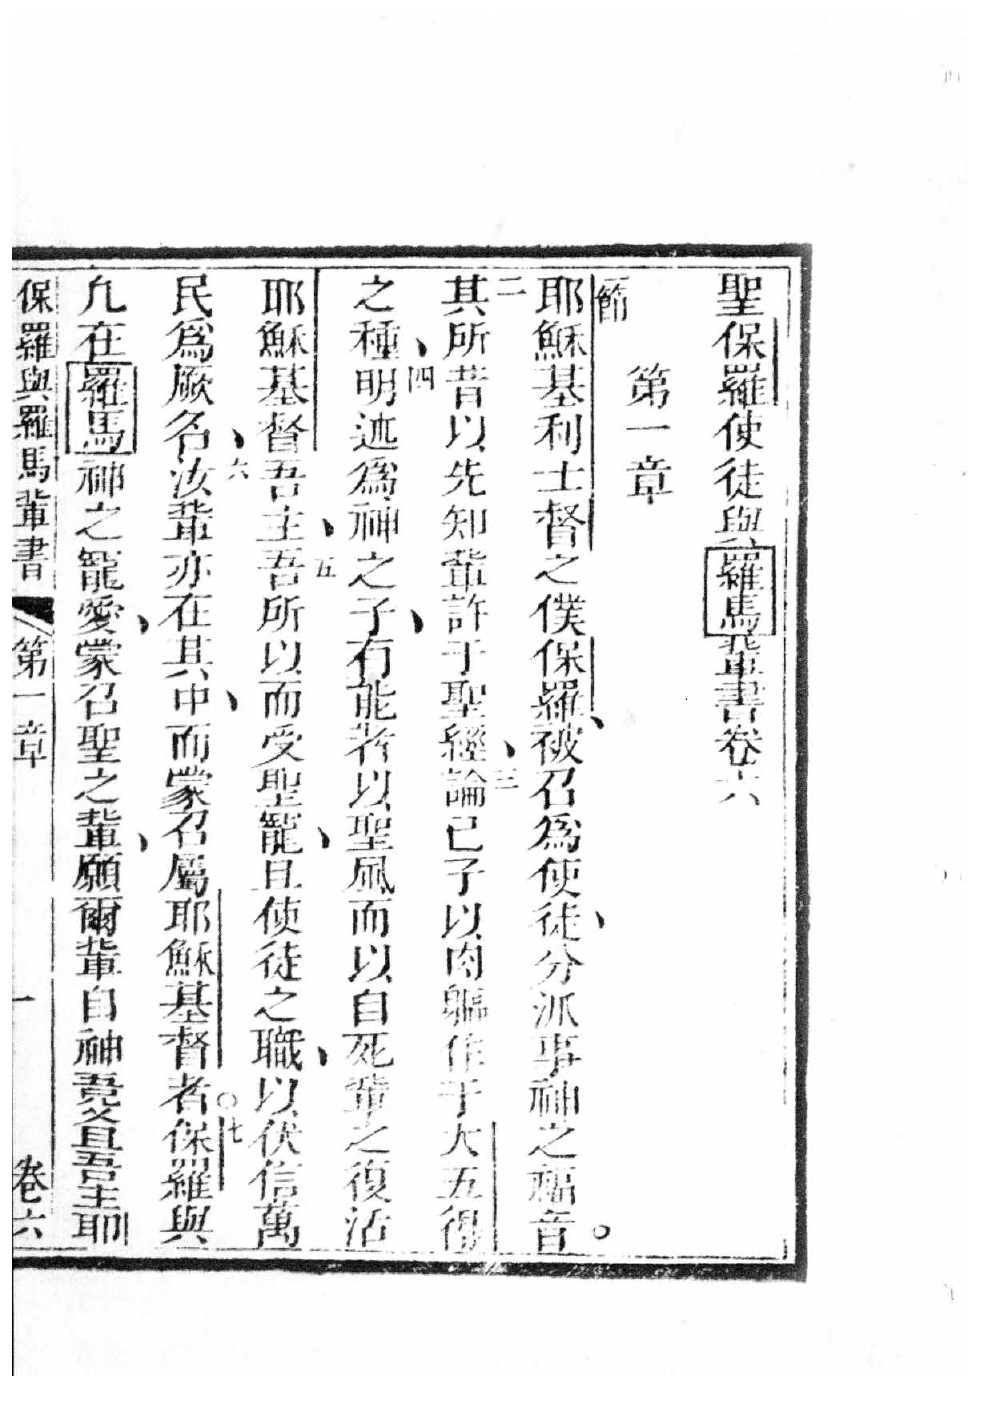 聖保羅使徒與羅馬輩書卷六
第一章
一節
耶穌基利士督之僕保羅被召為使徒分派事神之福音。
二其所昔以先知輩許于聖經三論己子以肉軀作于大五得
之種四明迹為神之子有能者以聖風而以自死輩之復活
耶穌基督吾主五吾所以而受聖寵且使徒之職以伏信萬
民為厥名六汝輩亦在其中而蒙召屬耶穌基督者○七保羅與
凢在羅馬神之寵愛蒙召聖之輩願爾輩自神吾父且吾主耶
保羅與羅馬輩書 第一章 一 卷六